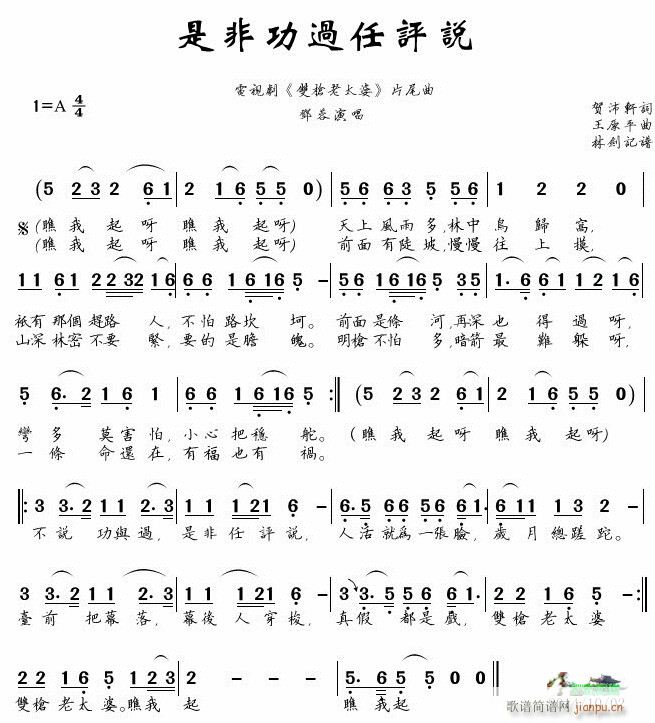 是非功過任評説
電視劇《雙槍老太婆》片尾曲
1=A 4/4
鄧蓉演唱
賀沛軒詞
王原平曲
林劍記譜
(5 2 3 2 6 1 | 2 1 6 5 5 0) | 5 6 6 5 3 5 6 | 1 2 2 0
(瞧我起呀 瞧我起呀) 天上風雨多,林中鳥歸窩,
(瞧我起呀 瞧我起呀) 前面有陡坡,慢慢往上摸,
1 1 6 1 2 2 3 2 1 6 | 6 6 1 6 1 6 5 - | 5 6 1 6 1 6 5 3 5 | 1. 6 6 1 1 2 1 6
衹有那個趕路人,不怕路坎坷。前面是條河,再深也得過呀,
山深林密不要緊,要的是膽魄。明槍不怕多,暗箭最難躲呀,
5 6. 2 1 1 6 1 | 6 6 6 1 6 5 :‖ (5 2 3 2 6 1 | 2 1 6 5 5 0)
彎多莫害怕,小心把穩舵。(瞧我起呀 瞧我起呀)
一條命還在,有福也有禍。
‖: 3 3. 2 1 1 2. 3 | 1 1 1 2 1 6 - | 6. 5 6 6 5 6 6 1 | 6 1 1 1 3 2 -
不説功與過,是非任評説,人活就爲一張臉,歲月總蹉跎。
3 3. 2 1 1 2. 3 | 1 1 1 2 1 6 - | 3 3. 5 5 6 6 1 | 2 2 1 6 5 6 - :‖
臺前把幕落,幕後人穿梭,真假都是戲,雙槍老太婆
2 2 1 6 5 1 2 3 | 2 - - - | 5. 6 5 5 0 ‖
雙槍老太婆。瞧我起 瞧我起
歌谱简谱网
jianpu.cn